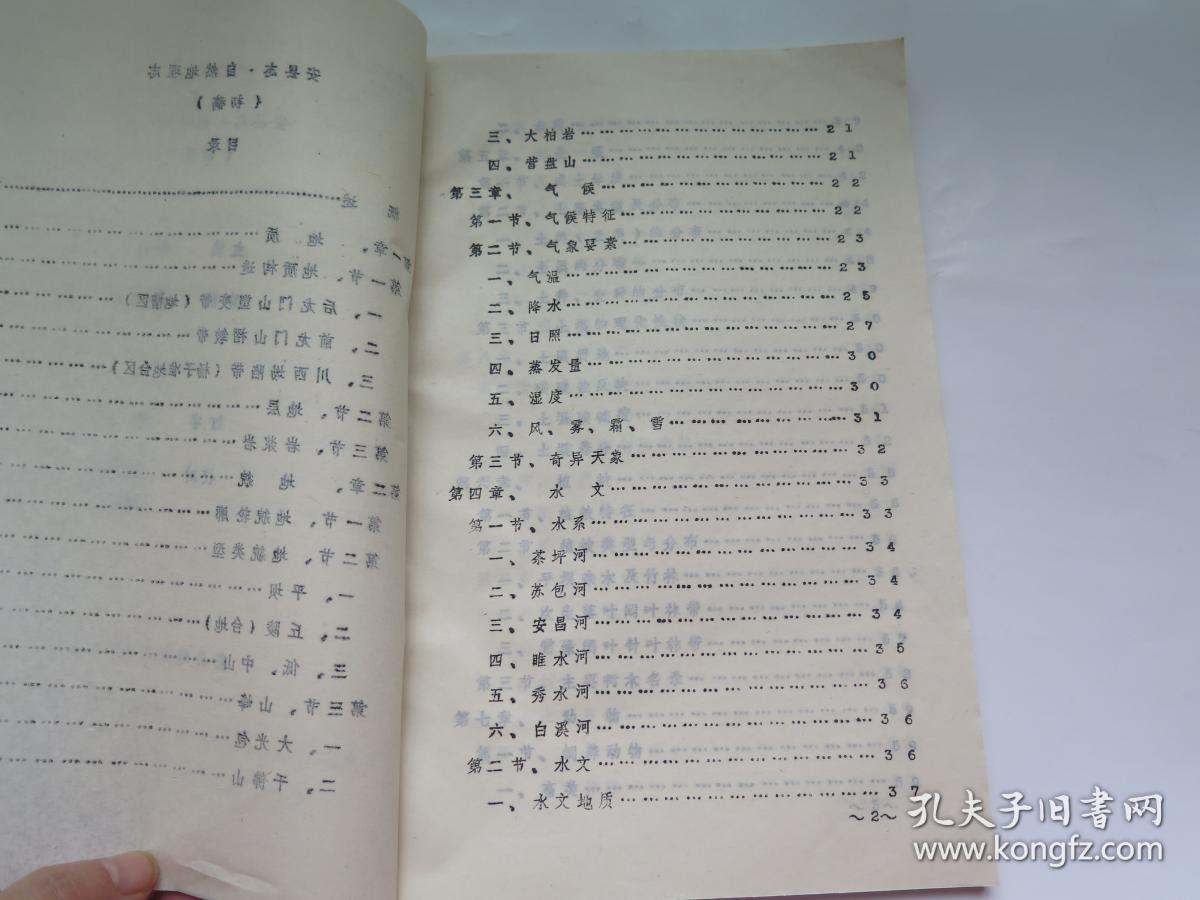 安县志·自然地理志
（初稿）
目录
概 述
第一章、 地 质
第一节、地质构造
一、后龙门山塑变带（地槽区）
二、前龙门山褶皱带
三、川西坳陷带（杨子准地台区）
第二节、地层
第三节、岩浆岩
第二章、 地 貌
第一节、地貌轮廓
第二节、地貌类型
一、平坝
二、丘陵（台地）
三、低、中山
第三节、山峰
一、大光包
二、千佛山
三、大柏岩…………………………21
四、营盘山…………………………21
第三章、 气 候…………………………22
第一节、气候特征…………………………22
第二节、气象要素…………………………23
一、气温…………………………23
二、降水…………………………25
三、日照…………………………27
四、蒸发量…………………………30
五、湿度…………………………30
六、风、雾、霜、雪…………………………31
第三节、奇异天象…………………………32
第四章、 水 文…………………………33
第一节、水系…………………………33
一、茶坪河…………………………34
二、苏包河…………………………34
三、安昌河…………………………34
四、睢水河…………………………35
五、秀水河…………………………36
六、白溪河…………………………36
第二节、水文…………………………36
一、水文地质…………………………37
～2～
孔夫子旧书网
www.kongfz.com